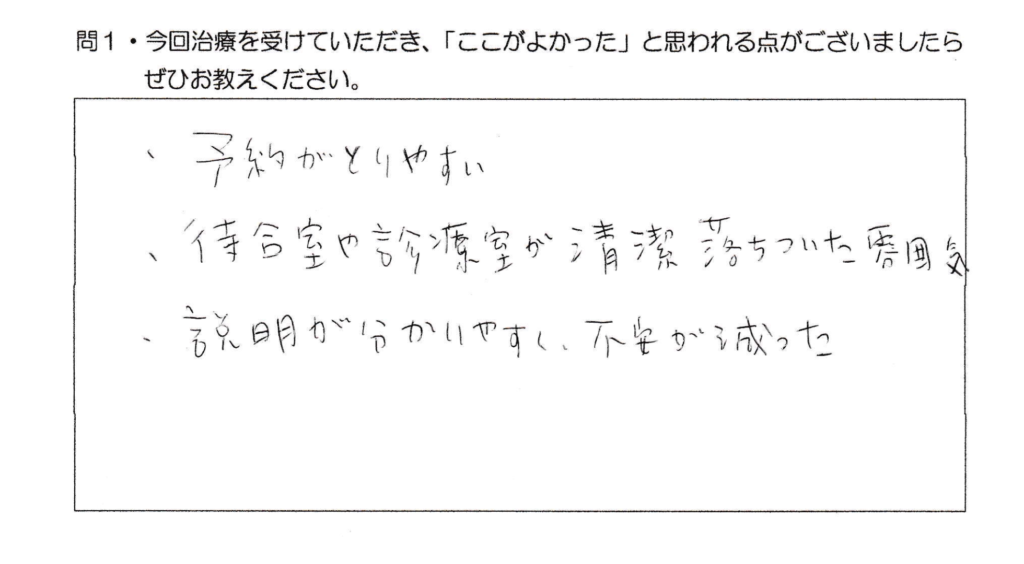 問1・今回治療を受けていただき、「ここがよかった」と思われる点がございましたら
ぜひお教えください。
、予約がとりやすい
、待合室や診療室が清潔 落ちついた雰囲気
、説明が分かりやすく、不安が減った